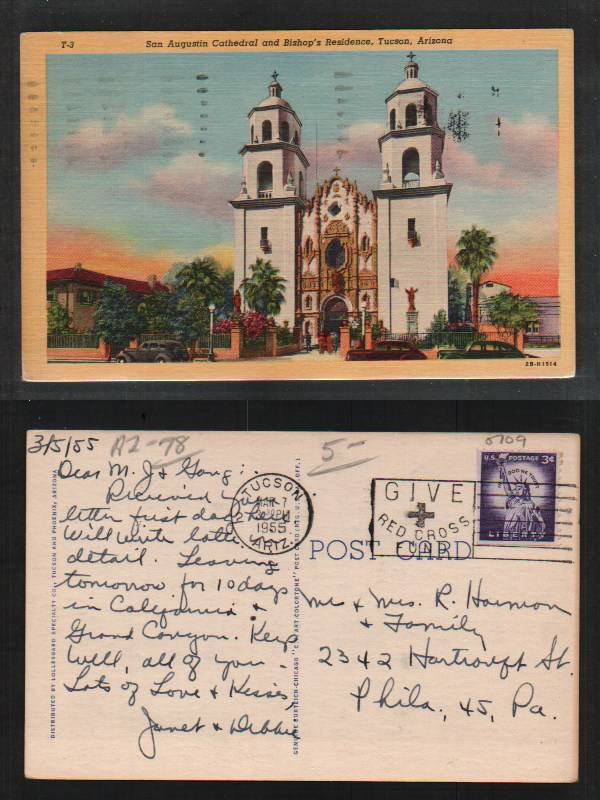 T-3
San Augustin Cathedral and Bishop's Residence, Tucson, Arizona
2B-H1514
3/5/55
AZ-78
5-
0709
Dear M. J & Gang:
Received your
letter first day here.
Will write later
detail. Leaving
tomorrow for 10 days
in California &
Grand Canyon. Keep
well, all of you -
Lots of Love & Kisses,
Janet & Debbie
TUCSON
MAR 7
1955
ARIZ.
GIVE
RED CROSS
FUND
U.S. POSTAGE 3¢
IN GOD WE TRUST
LIBERTY
POST CARD
Mr & Mrs. R. Harmon
& Family
2342 Hartranft St.
Phila., 45, Pa.
DISTRIBUTED BY LOLLESGARD SPECIALTY CO., TUCSON AND PHOENIX, ARIZONA
GENUINE CURTEICH-CHICAGO "C.T. ART-COLORTONE" POST CARD (REG. U.S. PAT. OFF.)